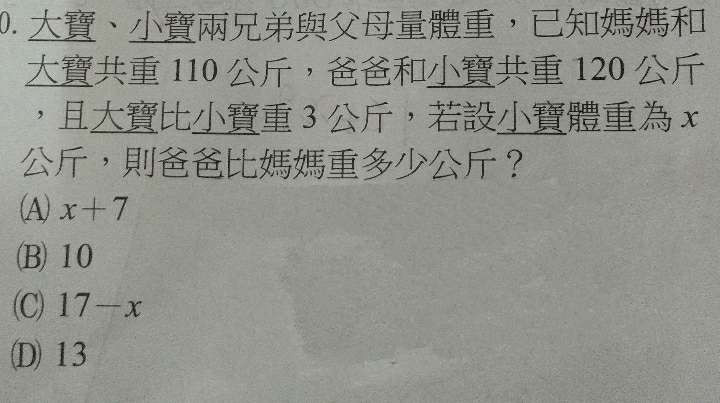 0. 大寶、小寶兩兄弟與父母量體重，已知媽媽和
大寶共重 110 公斤，爸爸和小寶共重 120 公斤
，且大寶比小寶重 3 公斤，若設小寶體重為 x
公斤，則爸爸比媽媽重多少公斤？
(A) x＋7
(B) 10
(C) 17－x
(D) 13